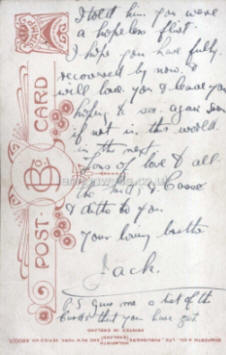 I told him you were
a hopeless flirt.
I hope you have fully
recovered by now. I
will love you & leave you
hoping to see again soon
if not in this world
in the next.
Tons of love & all
the
& ditto to you.
Your loving brother
Jack.
P.S Give me a list of the
birds that you have got
POST CARD
PRINTED IN ENGLAND